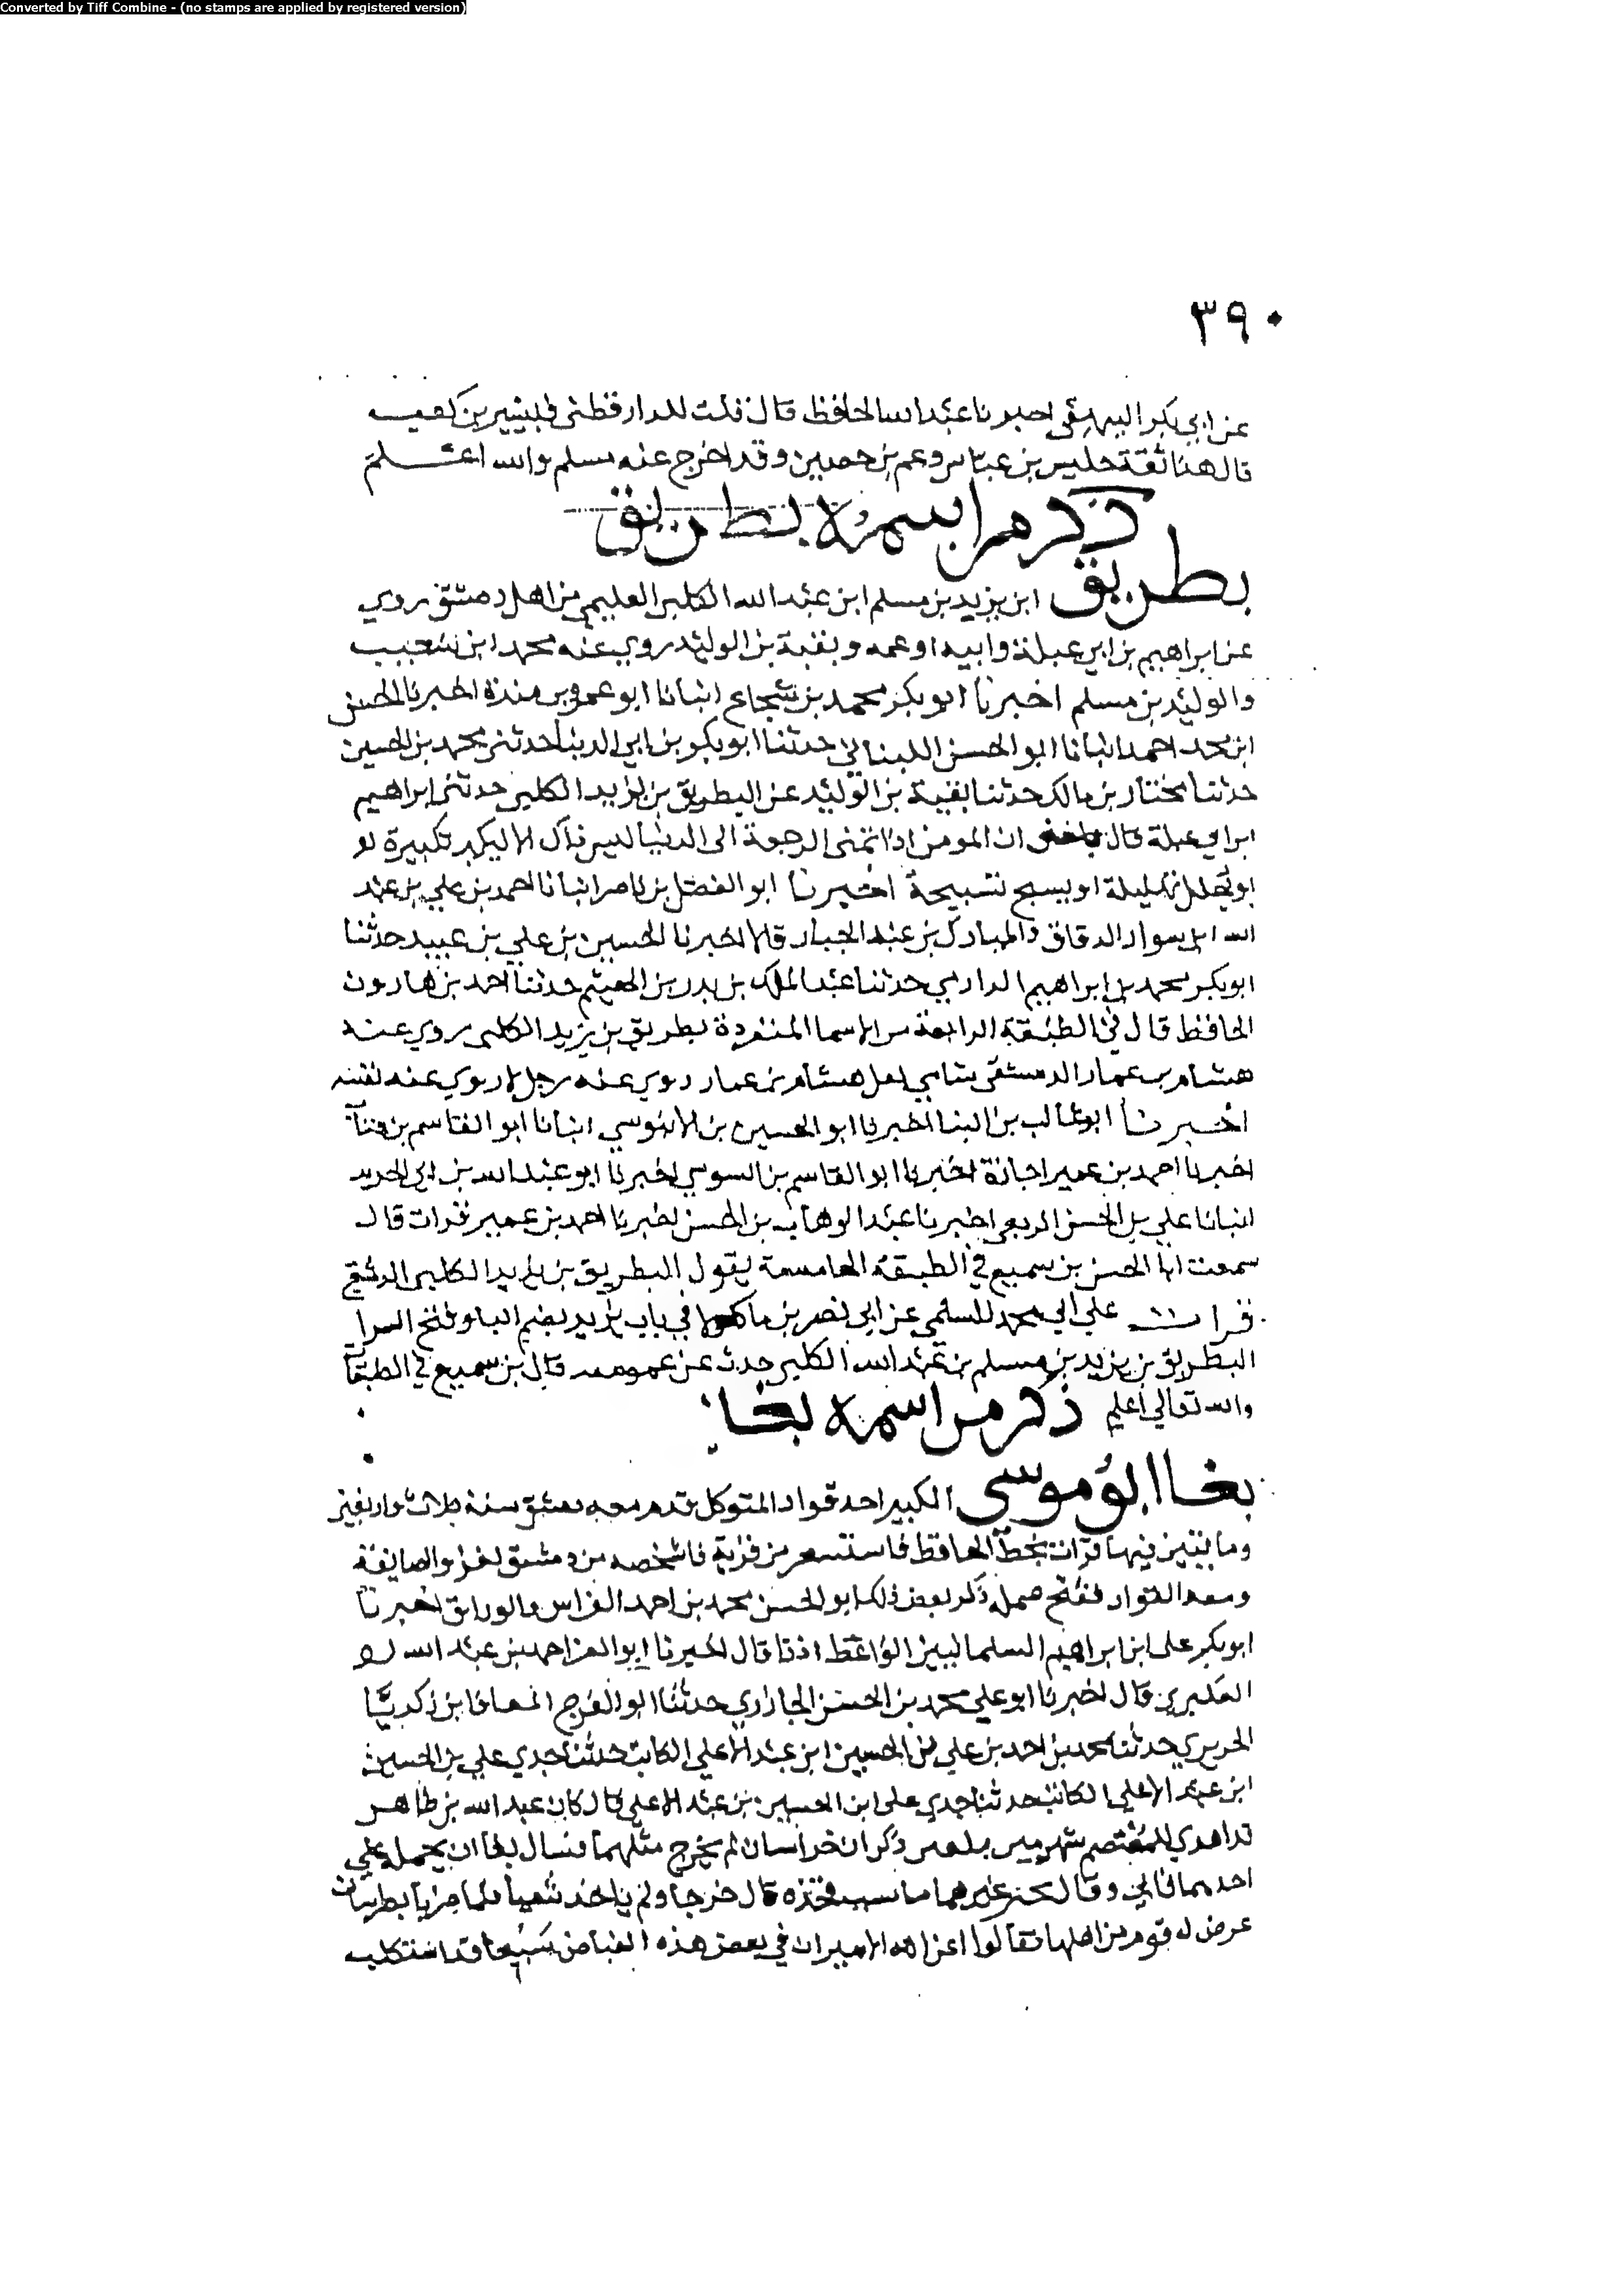 Converted by Tiff Combine - (no stamps are applied by registered version)
٣٩٠
عن ابي بكر البيهقي اخبرنا عبد الله الحافظ قال قلت للدارقطني فبشير بن كعب
قال هنا ثقة حليس بن عباس وعمر بن حصين وقد اخرج عنه مسلم والله اعلم
ذكر من اسمه بطريق
بطريق ابن يزيد بن مسلم ابن عبد الله الكلبي العليمي من اهل دمشق روي
عن ابراهيم بن ابي عبلة وابيه او عمه وبقية بن الوليد روي عنه محمد ابن شعيب
والوليد بن مسلم اخبرنا ابو بكر محمد بن شجاع انبانا ابو عمرو بن مندة اخبرنا الحسن
ابن محمد احمد انبانا ابو الحسن اللبناني حدثنا ابو بكر بن ابي الدنيا حدثني محمد بن الحسين
حدثنا مختار بن مالك حدثنا بقية بن الوليد عن البطريق بن يزيد الكلبي حدثني ابراهيم
ابن ابي عبلة قال بلغني ان المومن اذا تمنى الرجعة الى الدنيا ليس ذاك الا ليكبر تكبيرة او
او يهلل تهليلة او يسبح تسبيحة اخبرنا ابو الفضل بن ناصر انبانا احمد بن علي بن عبد
الله ابن سوار الدقاق والمبارك بن عبد الجبار قالا اخبرنا الحسين بن علي بن عبيد حدثنا
ابو بكر محمد بن ابراهيم الدارمي حدثنا عبد الملك بن بدر بن الهيثم حدثنا احمد بن هارون
الحافظ قال في الطبقة الرابعة من الاسما المنفردة بطريق بن يزيد الكلبي روي عنه
هشام بن عمار الدمشقي شامي لعل هشام بن عمار روي عنه رجل لا روي عنه نفسه
اخبرنا ابو غالب بن البنا اخبرنا ابو الحسين بن الابنوسي انبانا ابو القاسم بن عتاب
اخبرنا احمد بن عمير اجازة اخبرنا ابو القاسم بن السوسي اخبرنا ابو عبد الله بن ابي الحديد
انبانا علي بن الحسن الربعي اخبرنا عبد الوهاب بن الحسن اخبرنا احمد بن عمير قرات قال
سمعت ابا الحسن بن سميع في الطبقة الخامسة يقول البطريق بن يزيد الكلبي الدمشقي
قرات علي ابي محمد السلمي عن ابي نصر بن ماكولا في باب يزيد بضم البا وفتح الرا
البطريق بن يزيد بن مسلم بن عبد الله الكلبي حدث عن عمومته قال بن سميع في الطبقات
والله تعالي اعلم ذكر من اسمه بغا
بغا ابو موسي الكبير احد قواد المتوكل قدم معه دمشق سنة ثلاث واربعين
وما بنتين فيها قرات بخط الحافظ فاشخصه من دمشق لغزو الصايفة
ومعه القواد ففتح صمله ذكر بعض ذلك ابو الحسن محمد بن احمد القواس والوراق اخبرنا
ابو بكر علي ابن ابراهيم السلما الواعظ اذنا قال اخبرنا ابو العز احمد بن عبد الله
العكبري قال اخبرنا ابو علي محمد بن الحسن الجازري حدثنا ابو الفرج المعافا بن زكريا
الحريري حدثنا محمد بن احمد بن علي بن الحسين ابن عبد الاعلي الكاتب حدثنا جدي علي بن الحسين
ابن عبد الاعلي الكاتب حدثنا جدي علي ابن الحسين بن عبد الاعلي قال كان عبد الله بن طاهر
قد اهدي للمعتصم شهريين ذكر ان خراسان لم يخرج مثلهما فسال بغا ان يحمله علي
احدهما فابي وقال تخير غيرهما ما شيت فخذه قال خرجا ولم ياخذ شييا فلما صرنا بطبرستان
عرض له قوم من اهلها فقالوا اعز الله الامير ان في بعض هذه الغياض سبعا قد استكلب